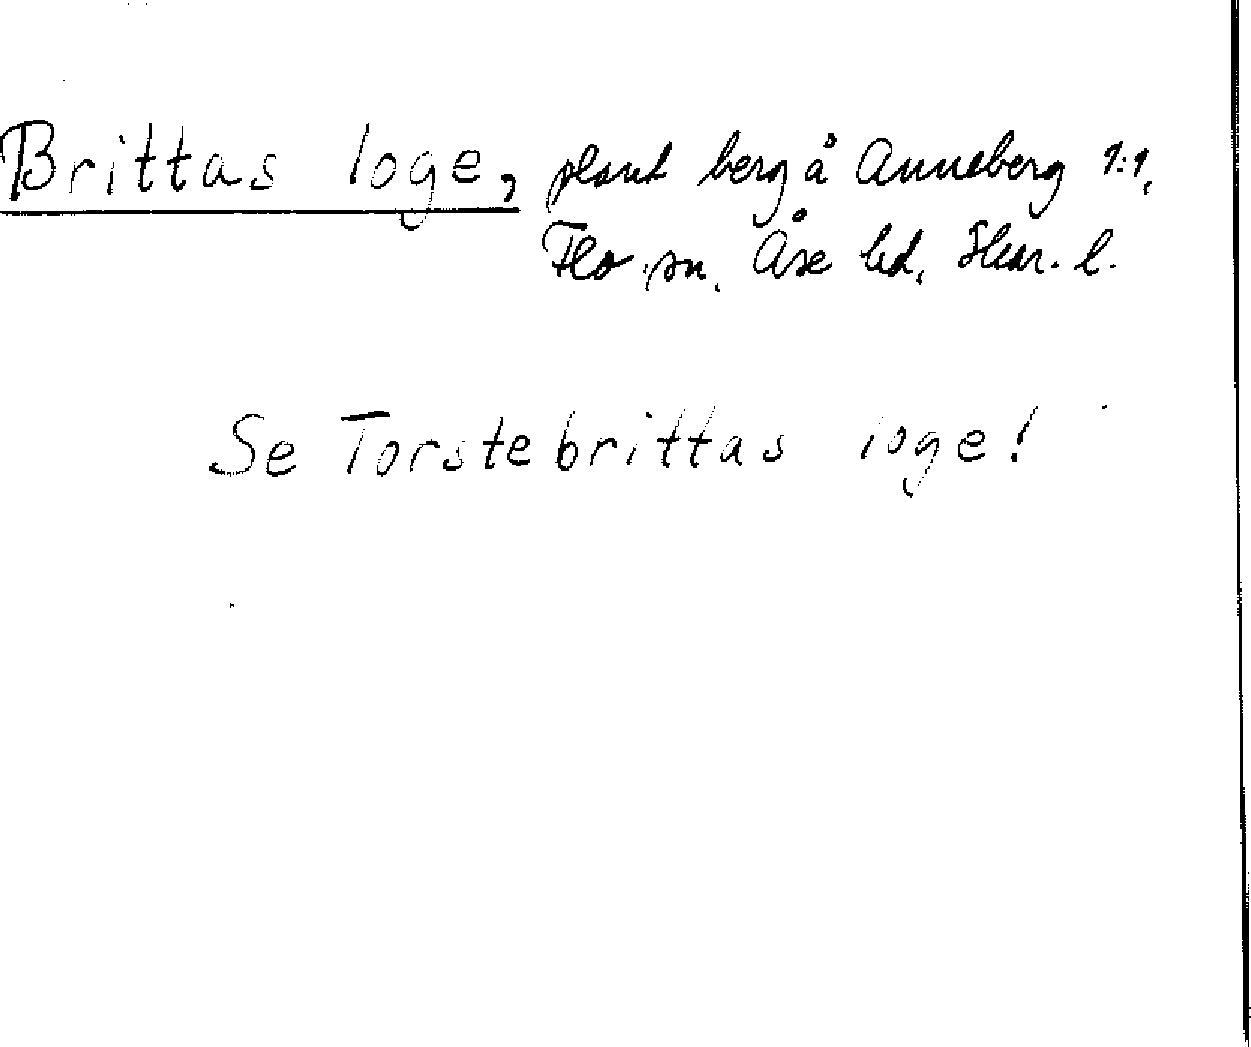 Brittas loge, plant berg å Anneberg 1:1,
Flo sn, Åse hd, Skar. l.
Se Torstebrittas loge!